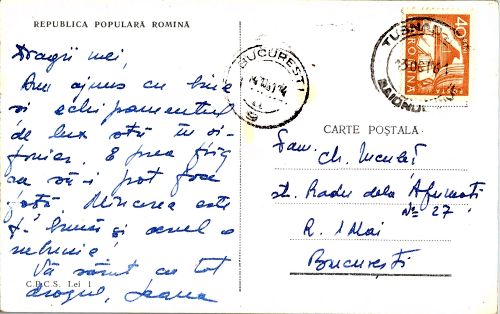 REPUBLICA POPULARĂ ROMÎNĂ
Dragii mei,
Am ajuns cu bine
și echipamentul
de lux stă în și-
fonier. E prea frig
ca să-i pot face
față. Mîncarea este
f. bună și aerul o
nebunie!
Vă sărut cu tot
dragul, Ioana
C.P.C.S. Lei 1
BUCUREȘTI
9
TUSNAD
RAIONUL
40 BANI
R.P. ROMÎNA
POSTA
CARTE POȘTALĂ
Fam.
Ch.
st. Radu dela Afumați
No 27
R. 1 Mai
București